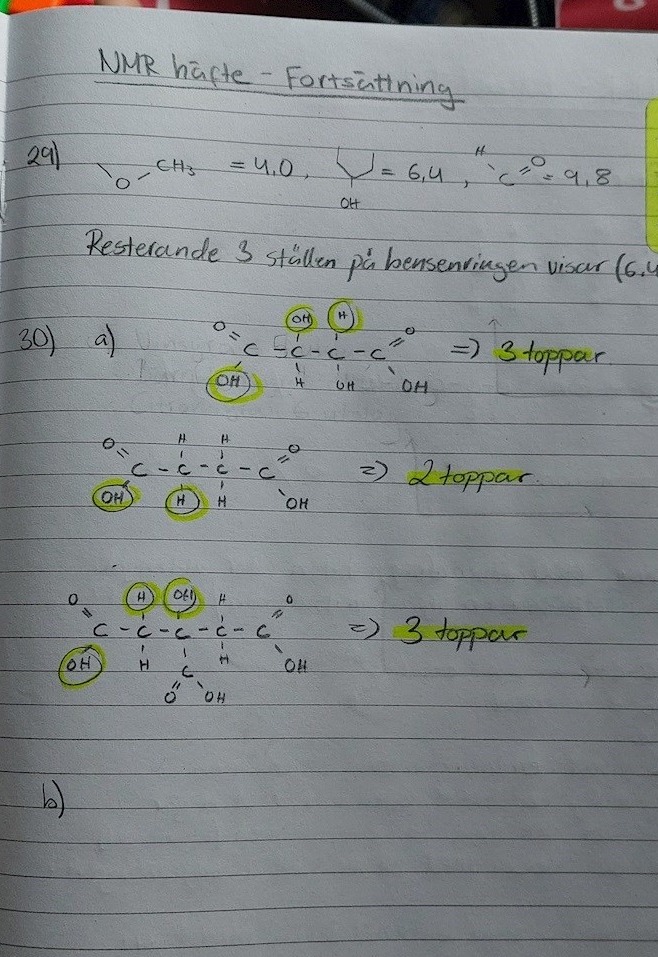 NMR häfte - Fortsättning
29) O CH3 = 4,0, OH = 6,4, H C O = 9,8
Resterande 3 ställen på bensenringen visar (6,4
30) a) O OH H O
C - C - C - C => 3 toppar
OH H OH OH
O H H O
C - C - C - C => 2 toppar
OH H H OH
O H OH H O
C - C - C - C - C => 3 toppar
OH H C H OH
O OH
b)